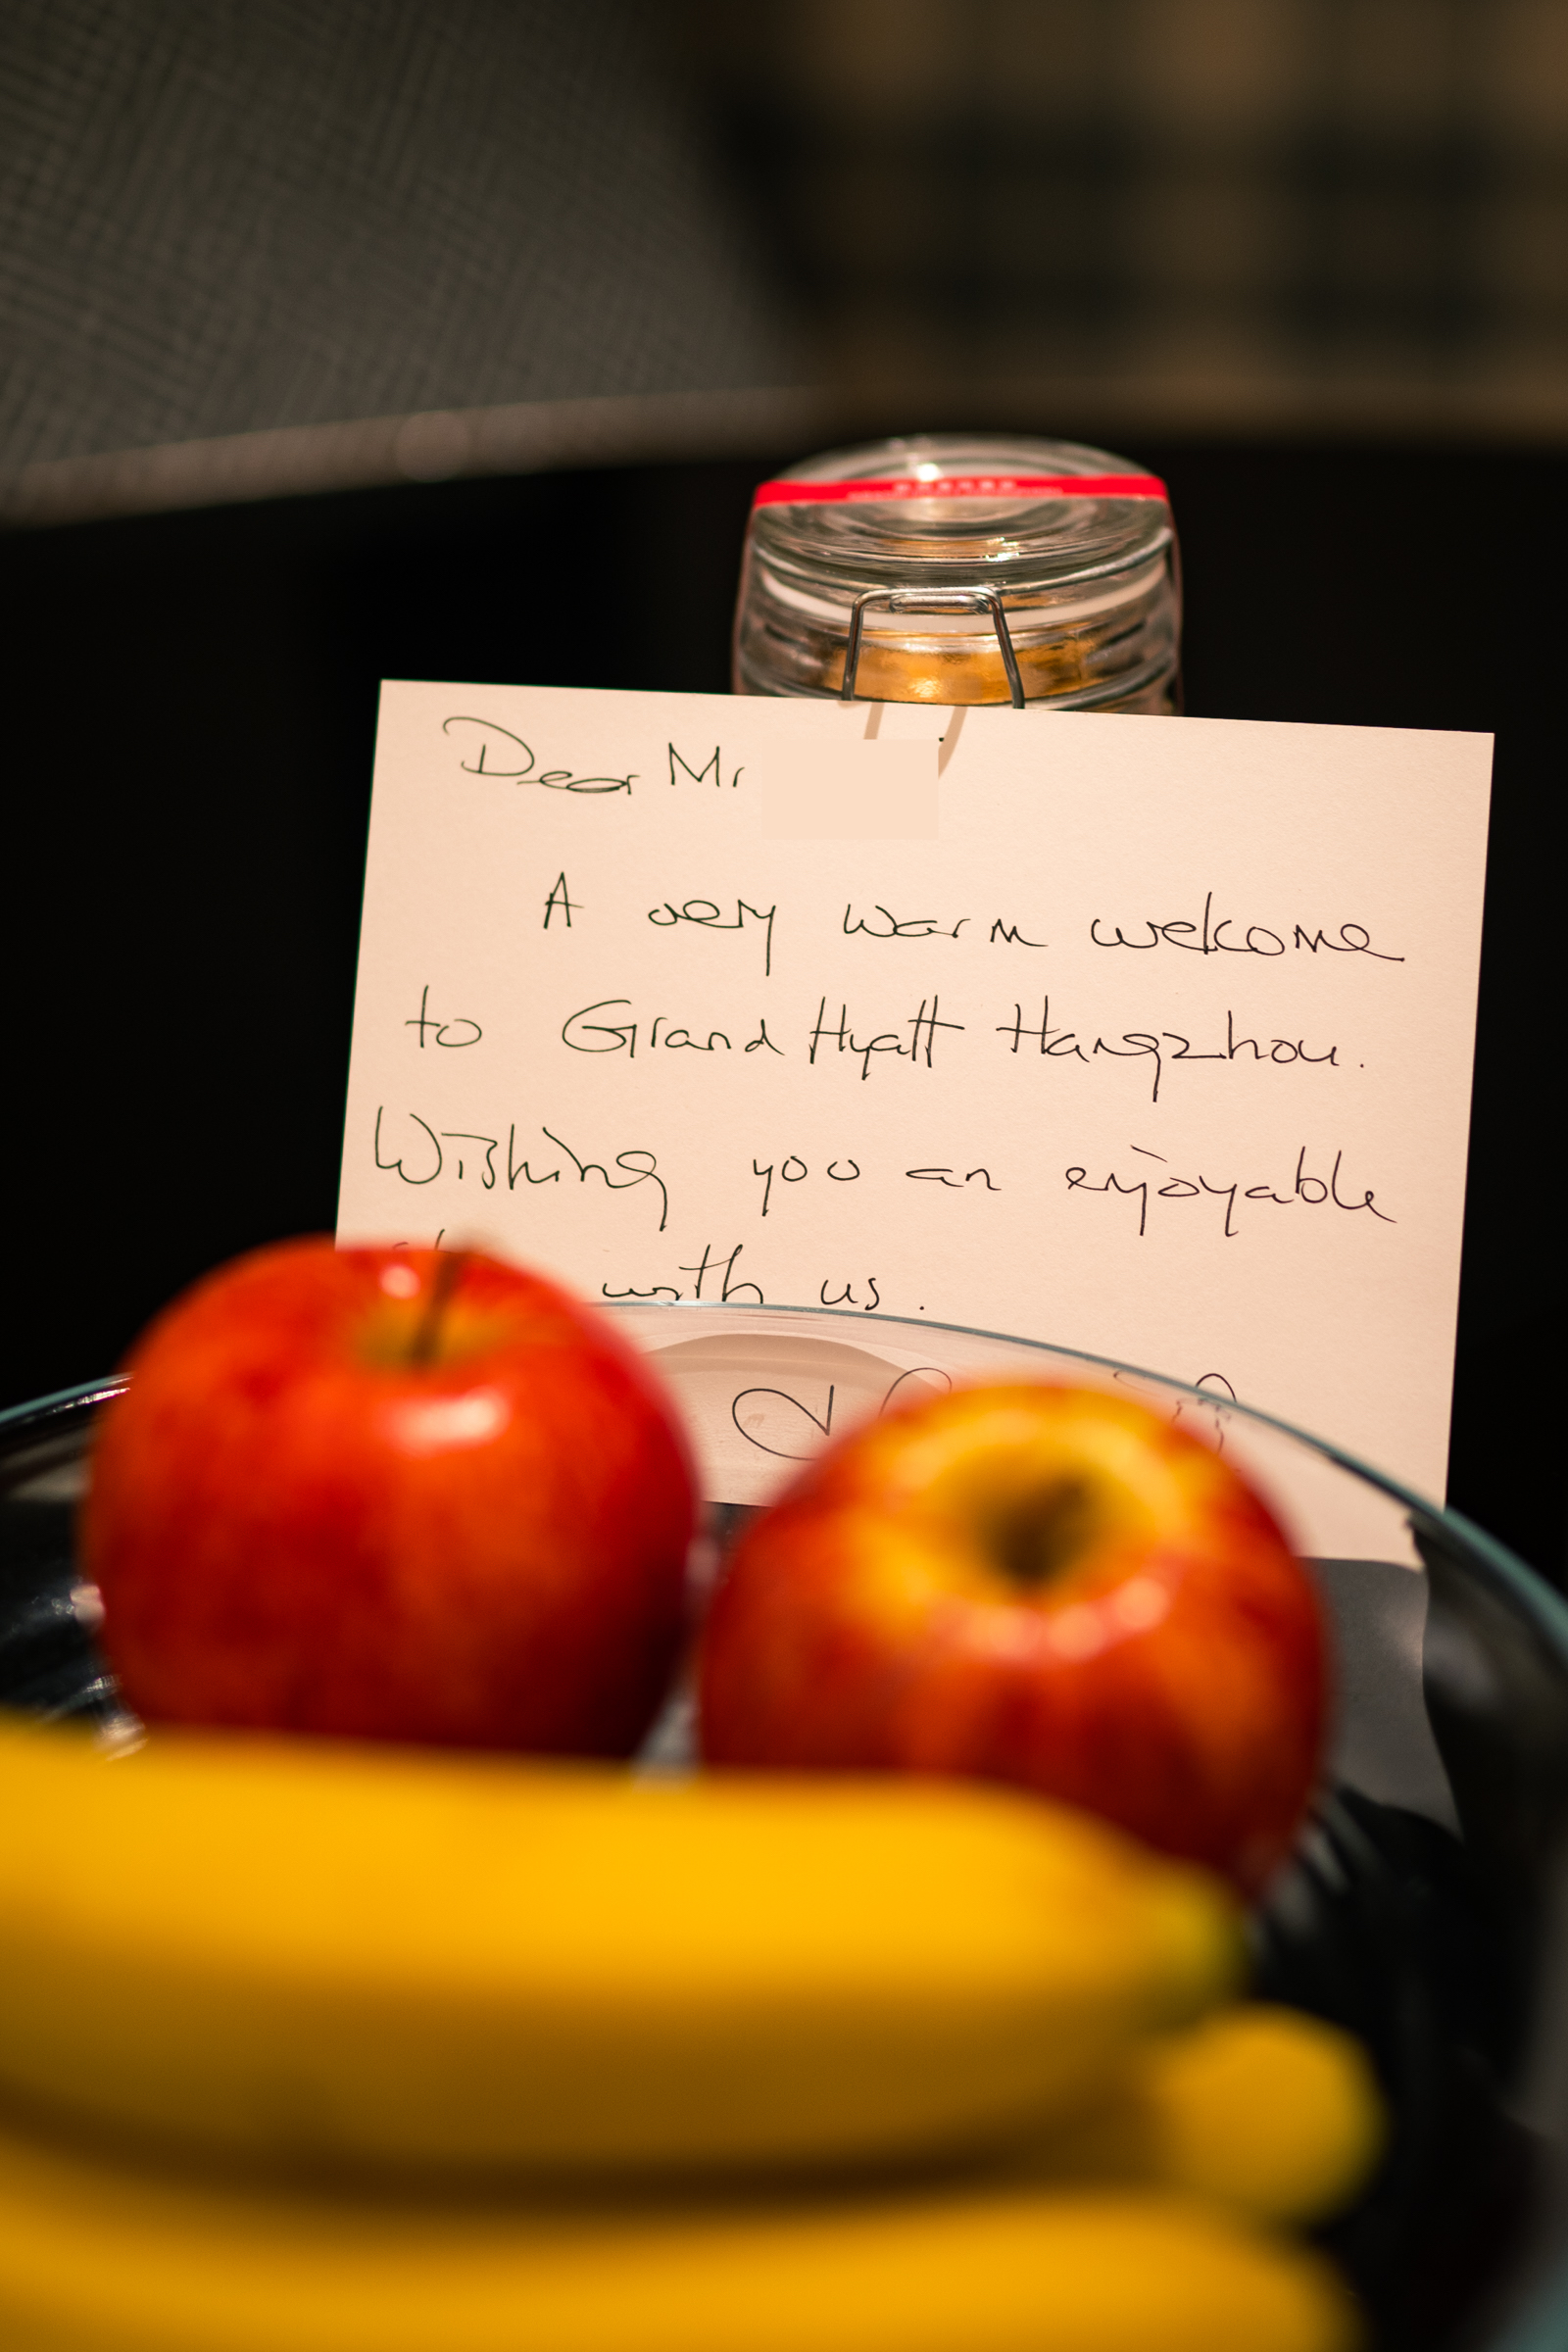 Dear Mr
A very warm welcome
to Grand Hyatt Hangzhou.
Wishing you an enjoyable
with us.